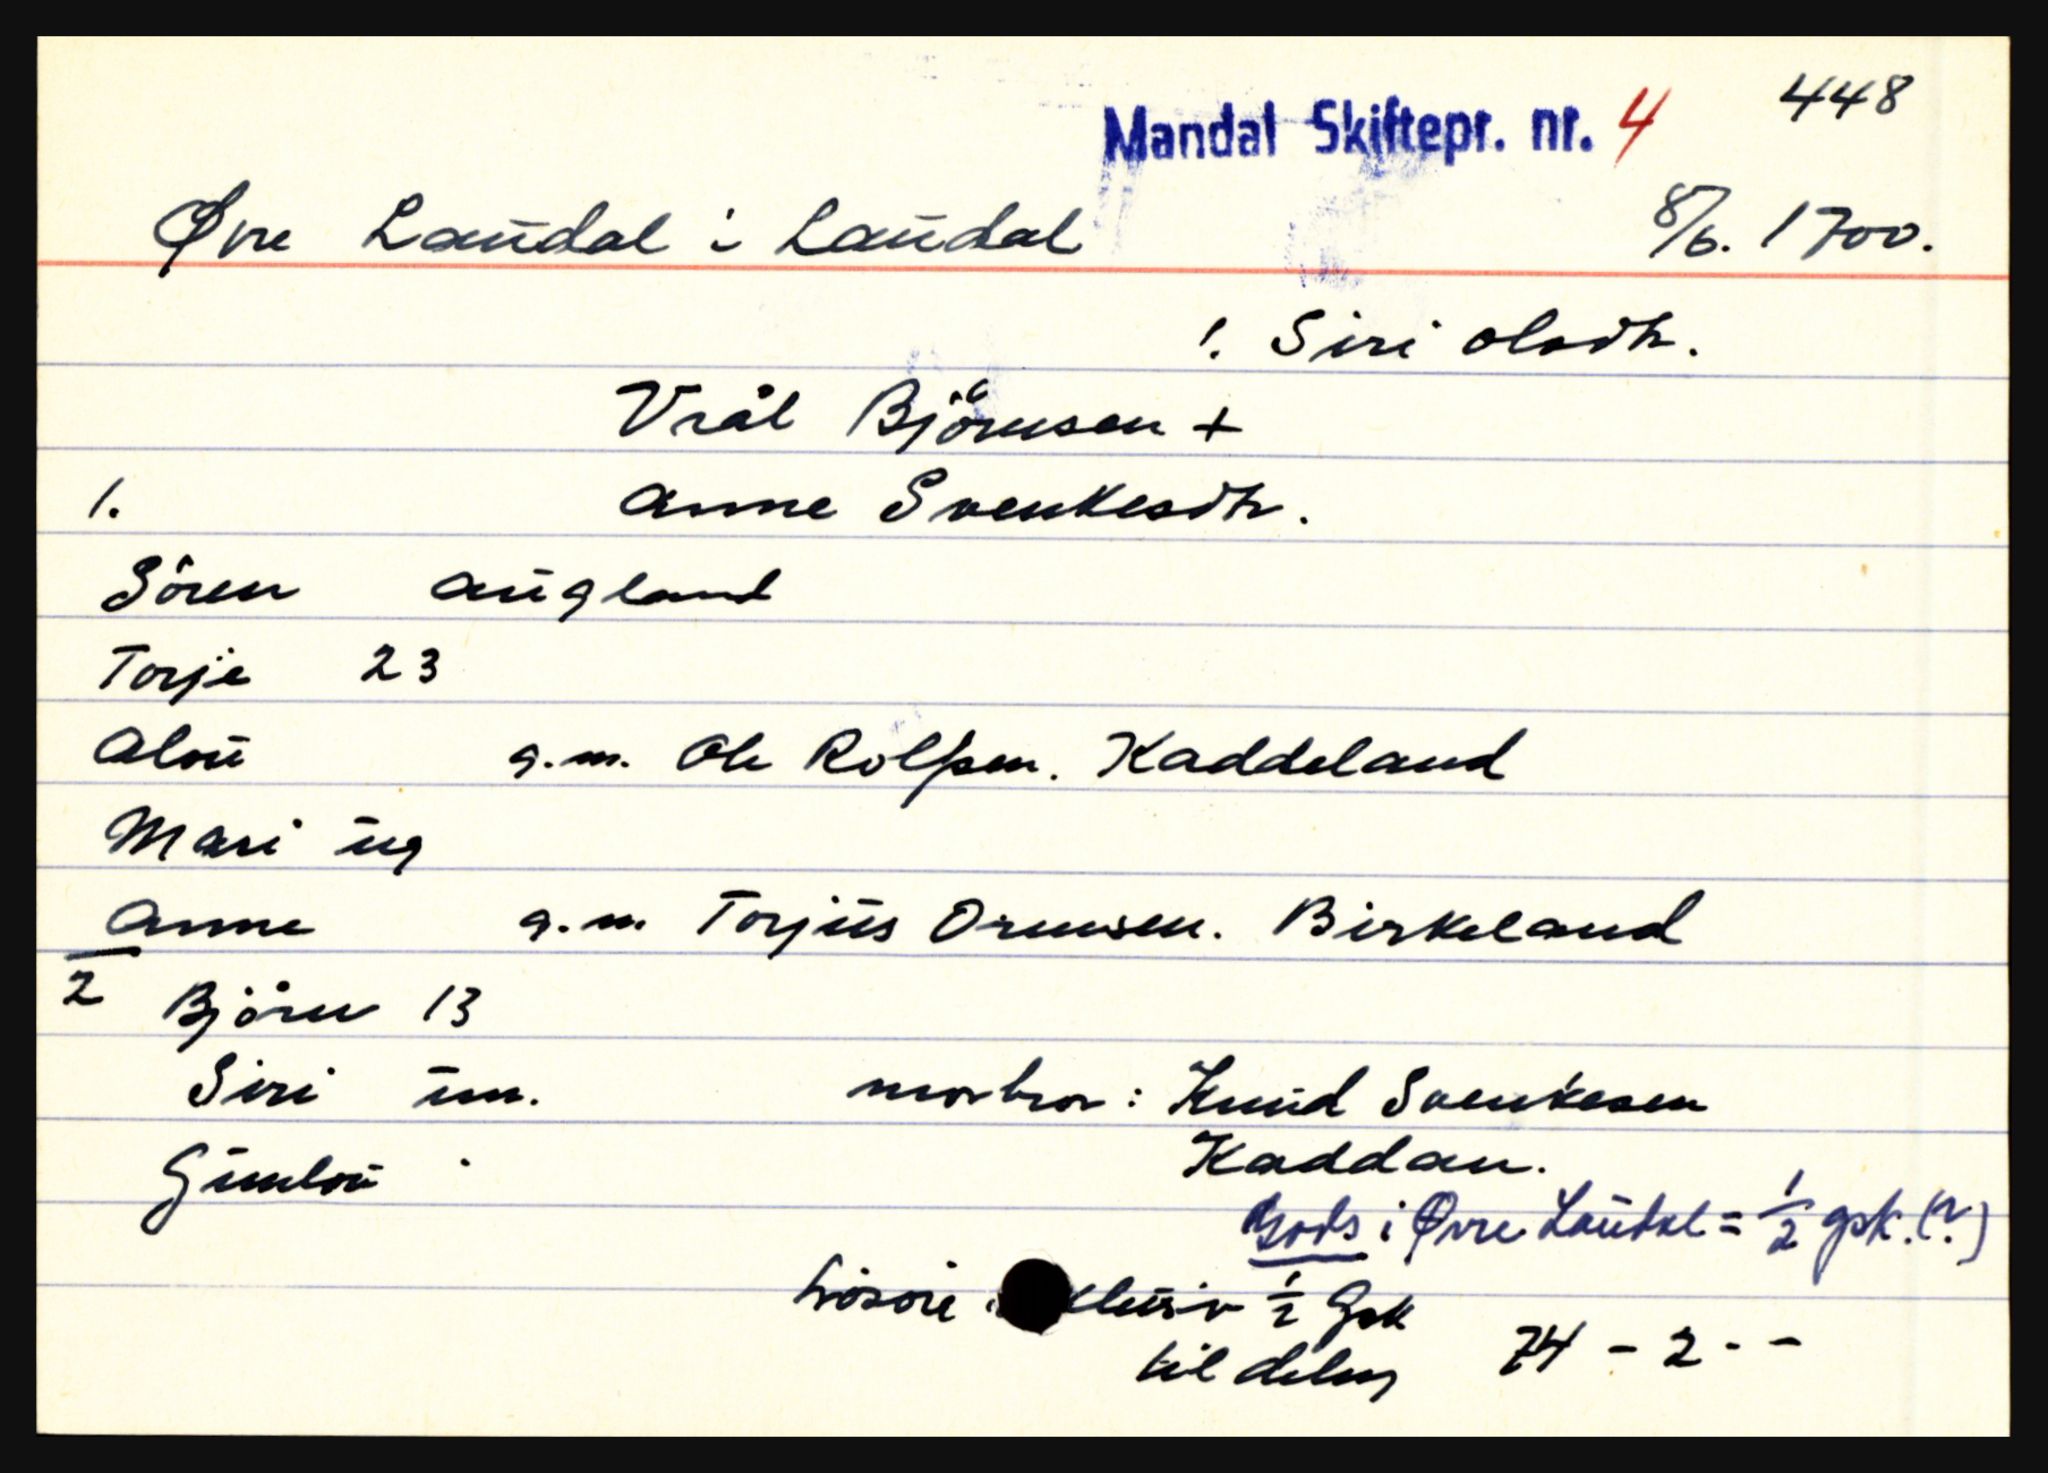 Mandal Skiftepr. nr. 4 448
Øvre Laudal i Laudal 8/6. 1700.
1. Siri Olsdtr.
Vrål Björnsen +
1. Anne Svenkesdtr.
Sören Augland
Torje 23
Alou g.m. Ole Rolfsen. Kaddeland
Mari ug
Anne g.m. Torjus Ormsen. Birkeland
2 Björn 13
Siri um. morbror: Knud Svenkesen
Gunlou Kaddan.
Gods i Øvre Laudal = 1/2 gsk. (?)
lösöre 1/2 Gsk
til deling 74 - 2 - -